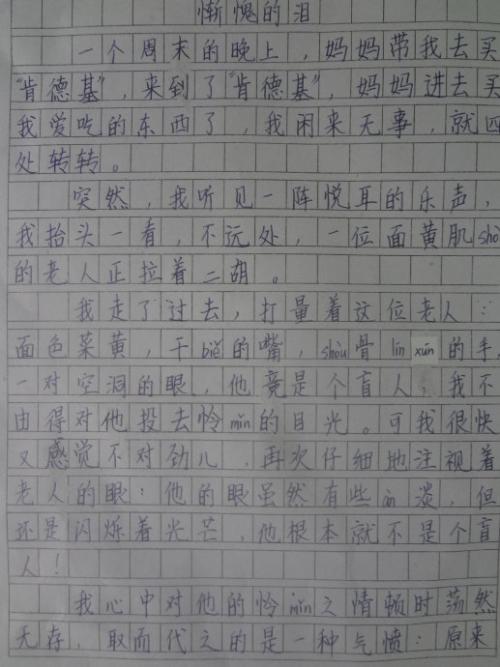 惭愧的泪
一个周末的晚上，妈妈带我去买
“肯德基”，来到了“肯德基”，妈妈进去买
我爱吃的东西了，我闲来无事，就四
处转转。
突然，我听见一阵悦耳的乐声，
我抬头一看，不远处，一位面黄肌shòu
的老人正拉着二胡。
我走了过去，打量着这位老人：
面色菜黄，干biě的嘴，shòu骨lín xún的手，
一对空洞的眼，他竟是个盲人，我不
由得对他投去怜mǐn的目光。可我很快
又感觉不对劲儿，再次仔细地注视着
老人的眼：他的眼虽然有些àn淡，但
还是闪烁着光芒，他根本就不是个盲
人！
我心中对他的怜mǐn之情顿时荡然
无存，取而代之的是一种气愤：原来